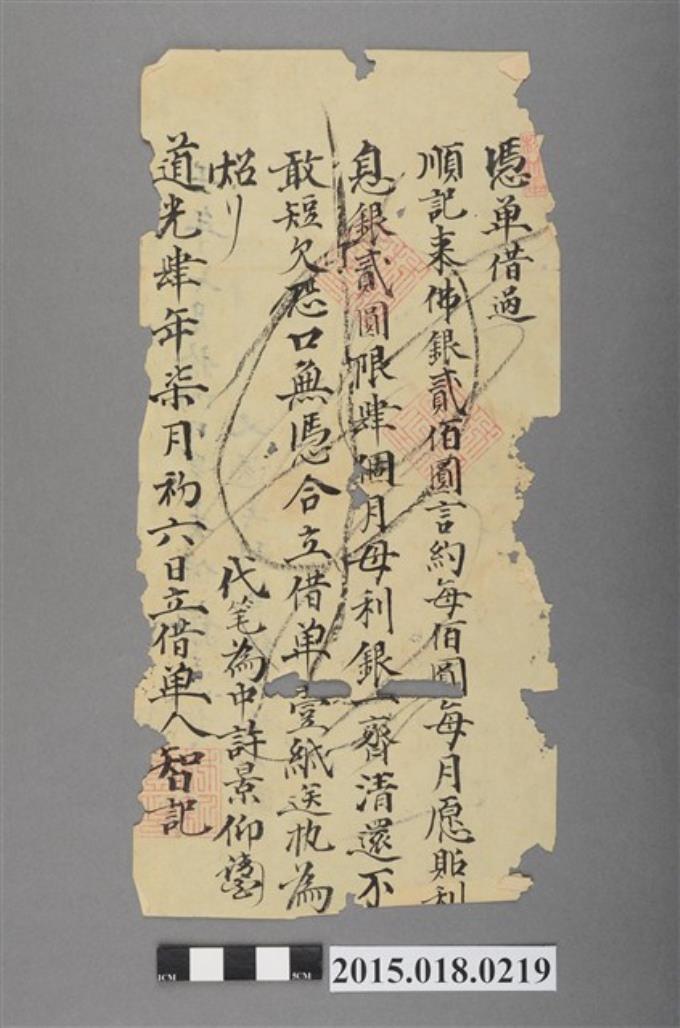 憑单借過
順記来佛銀貳佰圓言約每佰圓每月愿貼利
息銀貳圓限肆個月母利銀一齊清還不
敢短欠恐口無憑合立借单壹紙送执為
炤リ
代笔為中許景仰
道光肆年柒月初六日立借单人智記
1CM
5CM
2015.018.0219